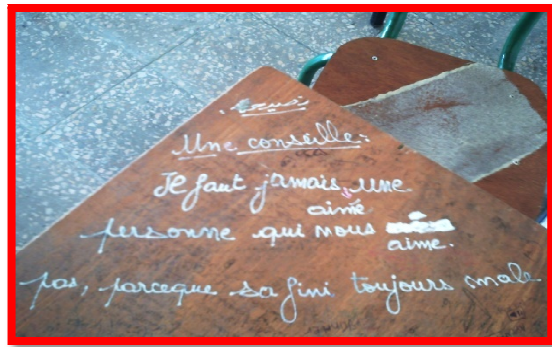 نصيحة
Une conseille:
Il faut jamais une
aimé
personne qui nous
aime.
pas, parceque sa fini toujours male